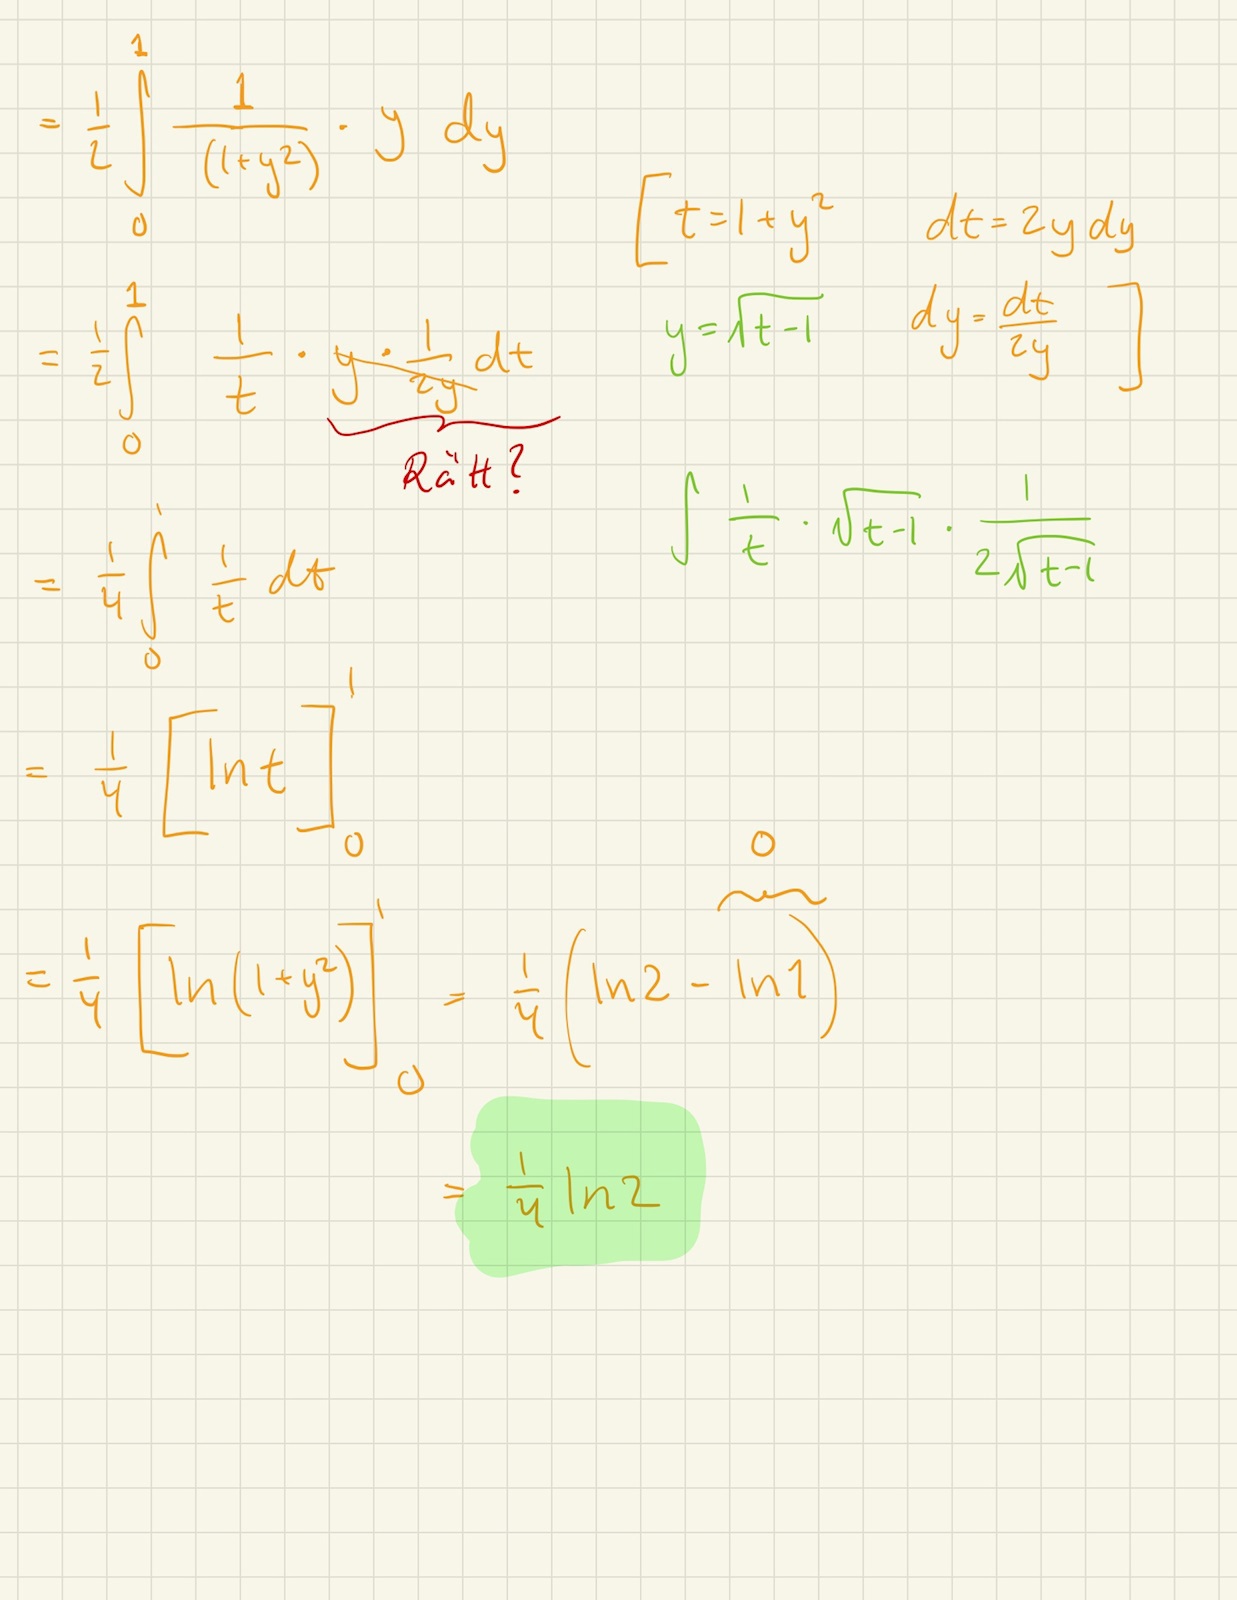 = 1/2 ∫₀¹ 1/(1+y²) · y dy
[ t = 1 + y² dt = 2y dy
y = √(t-1) dy = dt/2y ]
= 1/2 ∫₀¹ 1/t · y · 1/2y dt
Rätt?
∫ 1/t · √(t-1) · 1/(2√(t-1))
= 1/4 ∫₀¹ 1/t dt
= 1/4 [ln t]₀¹
0
= 1/4 [ln(1+y²)]₀¹ = 1/4 (ln2 - ln1)
= 1/4 ln2